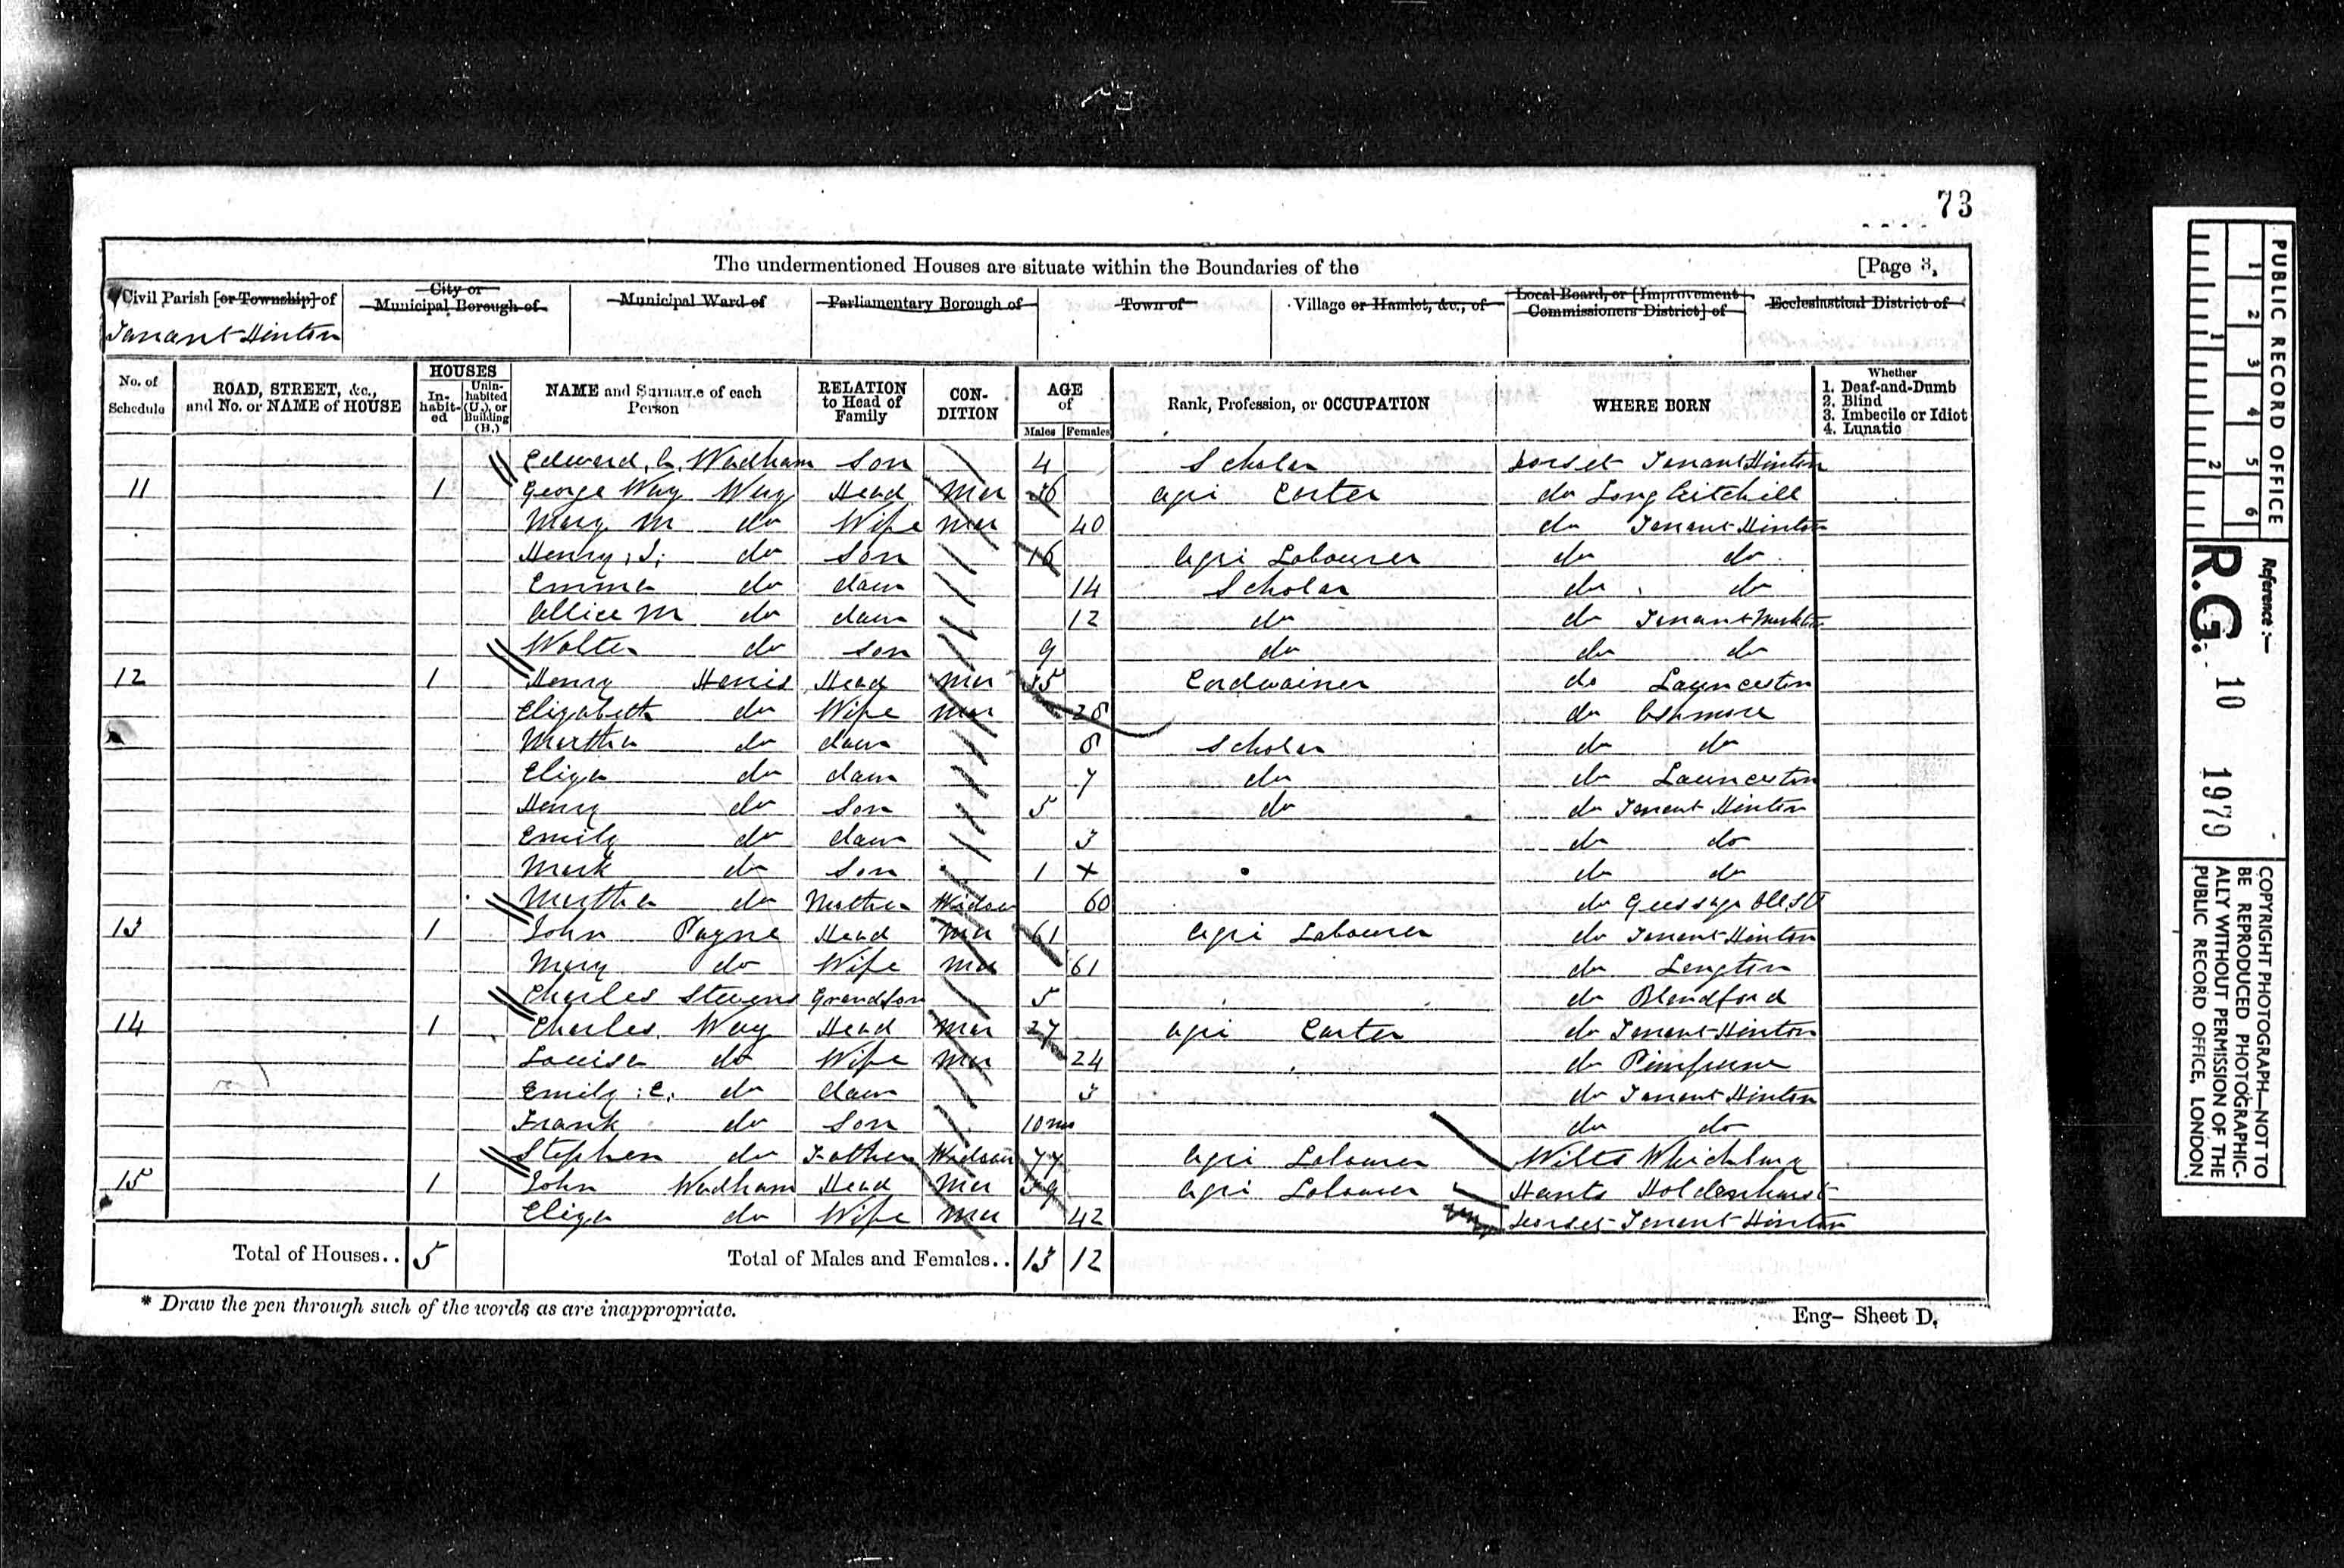 73
The undermentioned Houses are situate within the Boundaries of the [Page 3,
Civil Parish [or Township] of City or Municipal Borough of Municipal Ward of Parliamentary Borough of Town of Village or Hamlet, &c., of Local Board, or [Improvement Commissioners District] of Ecclesiastical District of
Tarrant Hinton
No. of Schedule ROAD, STREET, &c., and No. or NAME of HOUSE HOUSES Inhabited Uninhabited (U.), or Building (B.) NAME and Surname of each Person RELATION to Head of Family CONDITION AGE of Males Females Rank, Profession, or OCCUPATION WHERE BORN Whether 1. Deaf-and-Dumb 2. Blind 3. Imbecile or Idiot 4. Lunatic
Edward. C. Wadham Son 4 Scholar Dorset Tarrant Hinton
11 1 George Way Way Head Mar 36 Agri Carter do Long Critchill
Mary M do Wife Mar 40 do Tarrant Hinton
Henry. S. do Son 16 Agri Labourer do do
Emma do daur 14 Scholar do do
Allice M do daur 12 do do Tarrant Monkton
Walter do Son 9 do do do
12 1 Henry Harris Head Mar 35 Cordwainer do Launceston
Elizabeth do Wife Mar 28 do Ashmore
Martha do daur 8 Scholar do do
Eliza do daur 7 do do Launceston
Henry do Son 5 do do Tarrant Hinton
Emily do daur 3 do do
Mark do Son 1 + do do
Martha do Mother Widow 60 do Gussage All St
13 1 John Payne Head Mar 61 Agri Labourer do Tarrant Hinton
Mary do Wife Mar 61 do Langton
Charles Stevens Grandson 5 do Blandford
14 1 Charles Way Head Mar 27 Agri Carter do Tarrant Hinton
Louisa do Wife Mar 24 do Pimperne
Emily. E. do daur 3 do Tarrant Hinton
Frank do Son 10 mo do do
Stephen do Father 77 Agri Labourer Wilts Whichbury
15 1 John Wadham Head Mar 39 Agri Labourer Hants Holdenhurst
Eliza do Wife Mar 42 Dorset Tarrant Hinton
Total of Houses.. 5 Total of Males and Females.. 13 12
* Draw the pen through such of the words as are inappropriate.
Eng- Sheet D,
PUBLIC RECORD OFFICE
1 2 3 4 5 6
1 2
Reference :-
R.G. 10 1979
COPYRIGHT PHOTOGRAPH—NOT TO
BE REPRODUCED PHOTOGRAPHIC-
ALLY WITHOUT PERMISSION OF THE
PUBLIC RECORD OFFICE, LONDON